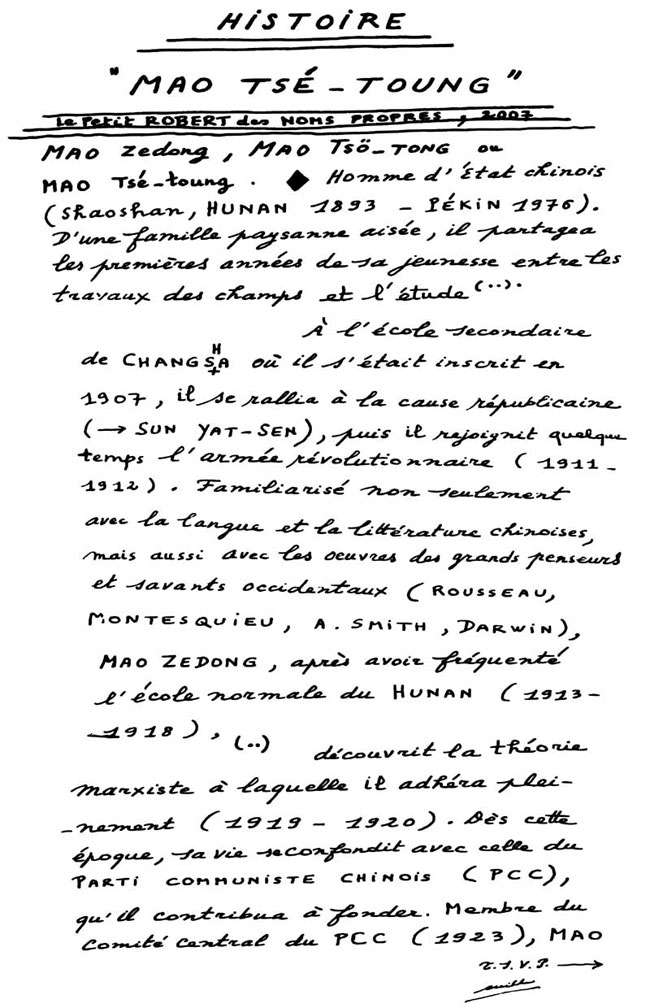 HISTOIRE
"MAO TSÉ-TOUNG"
Le Petit ROBERT des NOMS PROPRES, 2007
MAO Zedong, MAO TSÖ-TONG ou
MAO Tsé-toung. ◆ Homme d'État chinois
(Shaoshan, HUNAN 1893 - PÉKIN 1976).
D'une famille paysanne aisée, il partagea
les premières années de sa jeunesse entre les
travaux des champs et l'étude (..).
À l'école secondaire
de CHANGSHA où il s'était inscrit en
1907, il se rallia à la cause républicaine
(→ SUN YAT-SEN), puis il rejoignit quelque
temps l'armée révolutionnaire (1911-
1912). Familiarisé non seulement
avec la langue et la littérature chinoises,
mais aussi avec les oeuvres des grands penseurs
et savants occidentaux (ROUSSEAU,
MONTESQUIEU, A. SMITH, DARWIN),
MAO ZEDONG, après avoir fréquenté
l'école normale du HUNAN (1913-
-1918), (..)
découvrit la théorie
marxiste à laquelle il adhéra plei-
-nement (1919 - 1920). Dès cette
époque, sa vie se confondit avec celle du
PARTI COMMUNISTE CHINOIS (PCC),
qu'il contribua à fonder. Membre du
Comité Central du PCC (1923), MAO
T.S.V.P. →